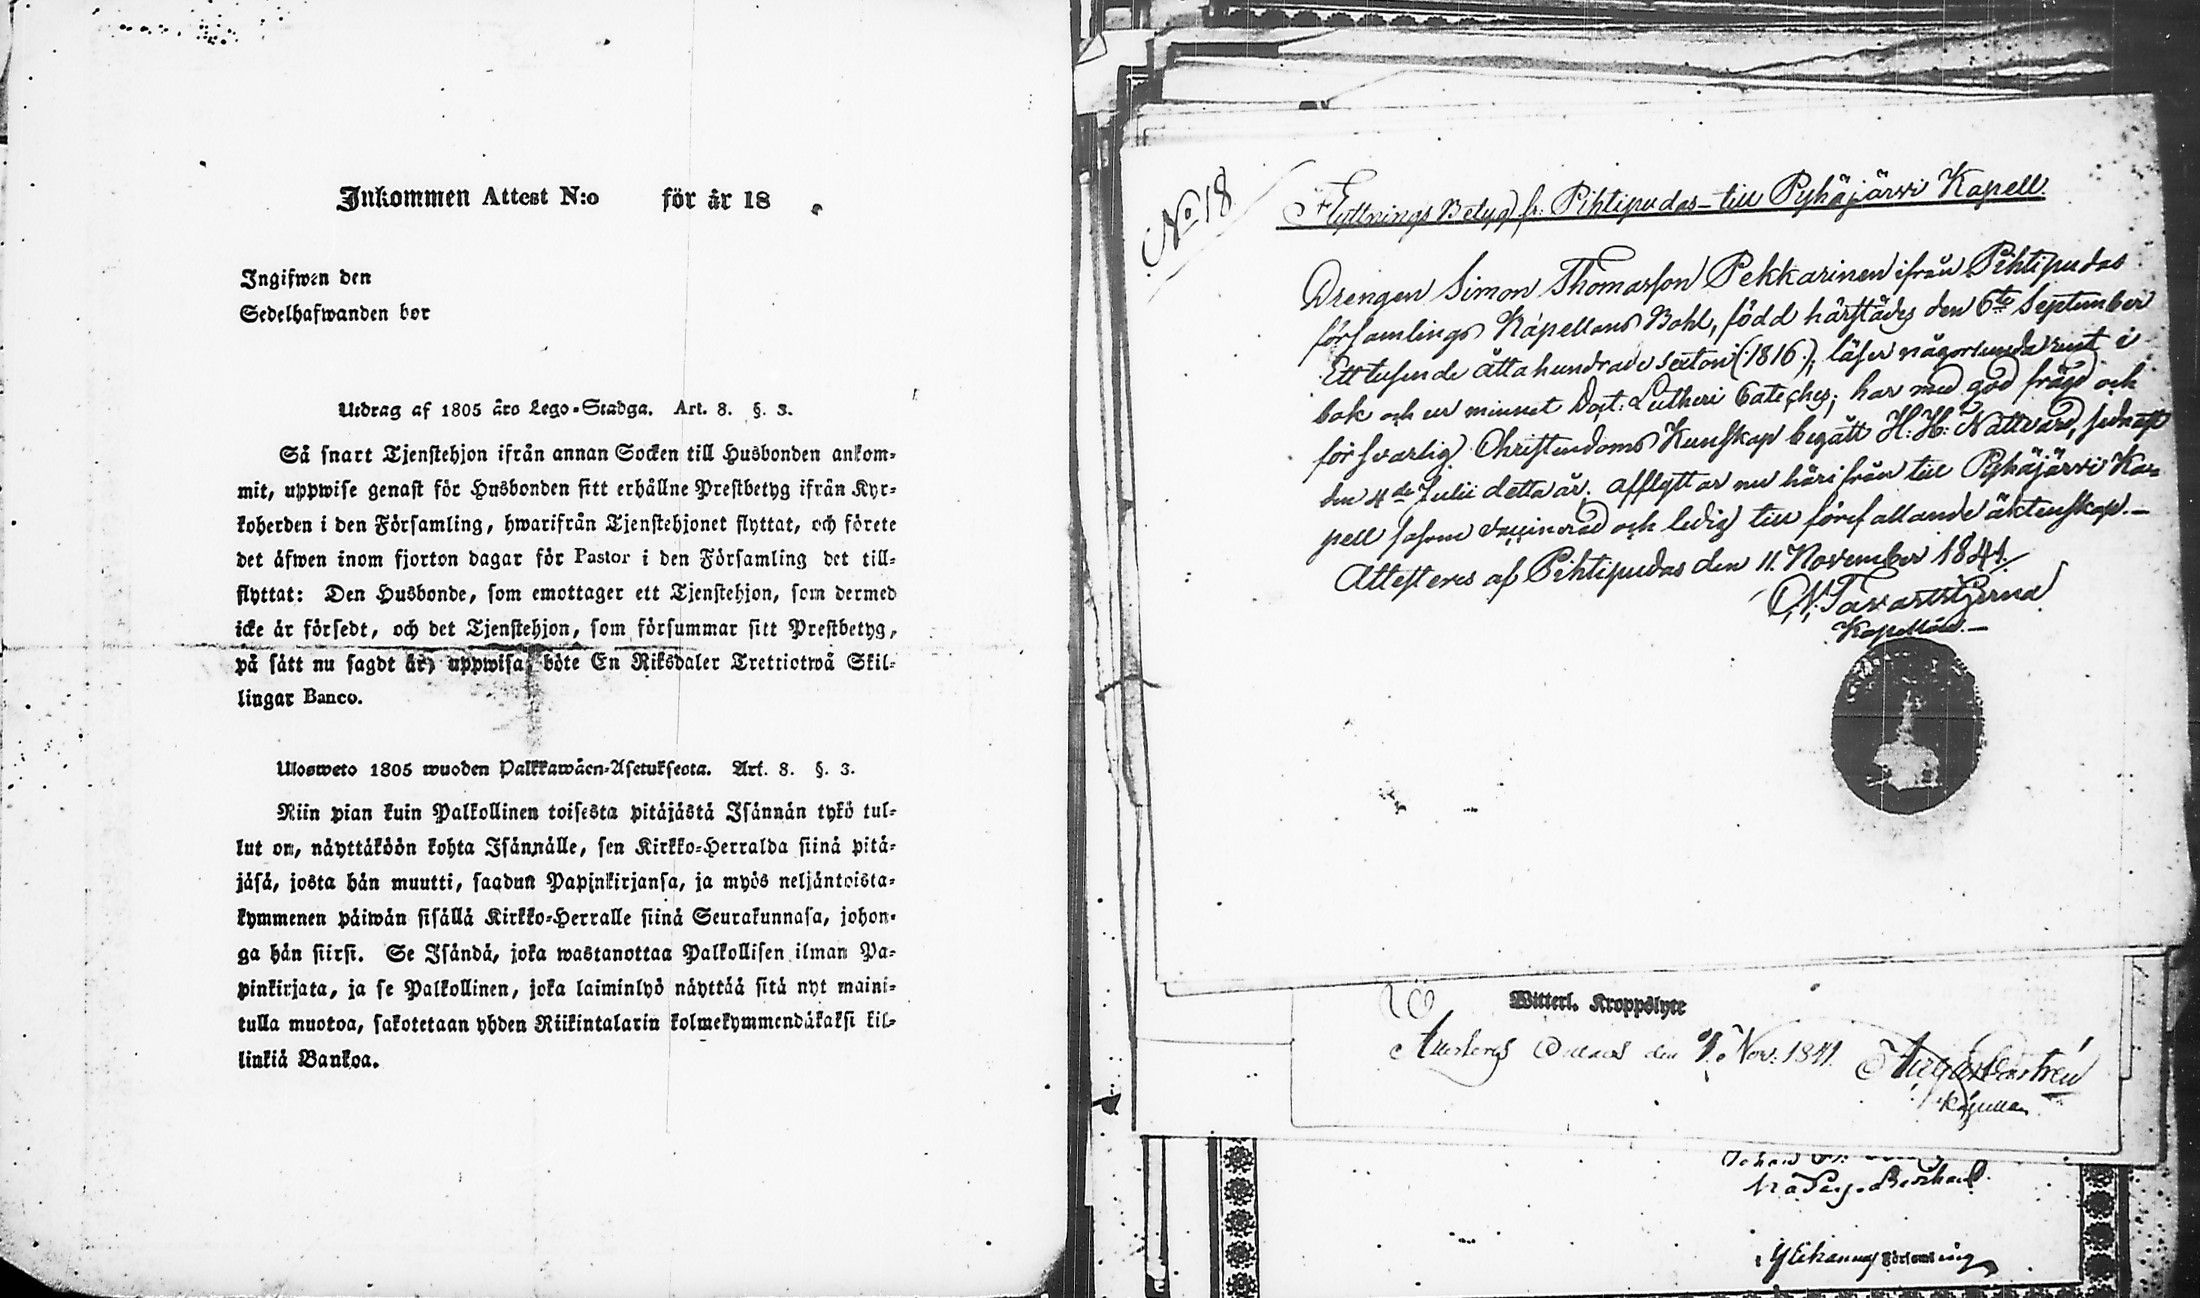 Inkommen Attest N:o för år 18
Ingifwen den
Sedelhafwanden bor
Utdrag af 1805 års Lego-Stadga. Art. 8. §. 3.
Så snart Tjenstehjon ifrån annan Socken till Husbonden ankom-
mit, uppwise genast för Husbonden sitt erhållne Prestbetyg ifrån Kyr-
koherden i den Församling, hwarifrån Tjenstehjonet flyttat, och förete
det äfwen inom fjorton dagar för Pastor i den Församling det till-
flyttat: Den Husbonde, som emottager ett Tjenstehjon, som dermed
icke är försedt, och det Tjenstehjon, som försummar sitt Prestbetyg,
på sätt nu sagdt är, uppwisa, böte En Riksdaler Trettiotwå Skil-
lingar Banco.
Ulosweto 1805 wuoden Palkkawäen-Asetuksesta. Art. 8. §. 3.
Niin pian kuin Palkollinen toisesta pitäjästä Isännän tykö tul-
lut on, näyttäköön kohta Isännälle, sen Kirkko-Herralda siinä pitä-
jäsä, josta hän muutti, saadun Papinkirjansa, ja myös neljäntoista-
kymmenen päiwän sisällä Kirkko-Herralle siinä Seurakunnasa, johon-
ga hän siirsi. Se Isändä, joka wastanottaa Palkollisen ilman Pa-
pinkirjata, ja se Palkollinen, joka laiminlyö näyttää sitä nyt maini-
tulla muotoa, sakotetaan yhden Riikintalarin kolmekymmendäkaksi kil-
linkiä Bankoa.
No 18
Flyttnings Betyg fr: Pihtipudas till Pyhäjärvi Kapell.
Drengen Simon Thomasson Pekkarinen ifrån Pihtipudas
församlings Kapellans Bohl, född härstädes den 6te September
Ett tusende åtta hundrade sexton (:1816:), läser någorlunda rent i
bok och ur minnet Doct: Lutheri Cateches; har med god frägd och
försvarlig Christendoms Kunskap begått H: H: Nattvard, sednast
den 4de Julii detta år. afflyttar nu härifrån till Pyhäjärvi Ka-
pell såsom vaccinerad och ledig till förefallande äktenskap.—
Attesteras af Pihtipudas den 11. November 1841.
Tavaststjerna
Kapellan.—
Witterl. Kroppslyte
den Nov: 1841.
Castrén
Kapellan
Församling